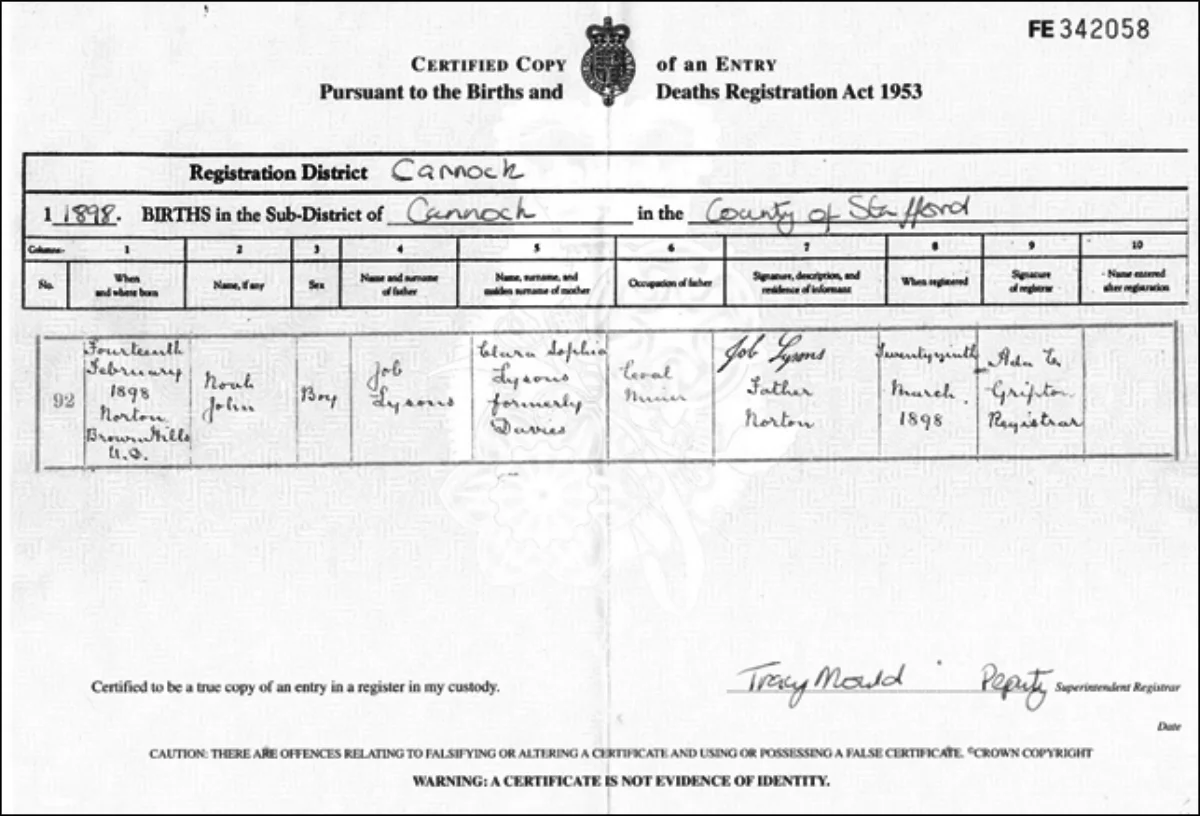 FE 342058
CERTIFIED COPY of an ENTRY
Pursuant to the Births and Deaths Registration Act 1953
Registration District Cannock
1 1898. BIRTHS in the Sub-District of Cannock in the County of Stafford
Columns:- 1 2 3 4 5 6 7 8 9 10
No. When and where born Name, if any Sex Name and surname of father Name, surname, and maiden surname of mother Occupation of father Signature, description, and residence of informant When registered Signature of registrar Name entered after registration
92
Fourteenth
February
1898
Norton
Brown Hills
Noah
John
Boy
Job
Lysons
Clara Sophia
Lysons
formerly
Davies
Coal
Miner
Job Lysons
Father
Norton
March
1898
Gripton
Registrar
Certified to be a true copy of an entry in a register in my custody.
Tracy Mould Deputy Superintendent Registrar
Date
CAUTION: THERE ARE OFFENCES RELATING TO FALSIFYING OR ALTERING A CERTIFICATE AND USING OR POSSESSING A FALSE CERTIFICATE. ©CROWN COPYRIGHT
WARNING: A CERTIFICATE IS NOT EVIDENCE OF IDENTITY.